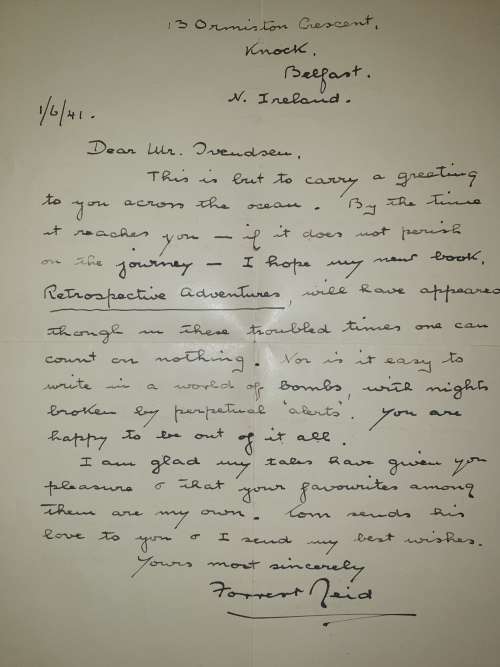 13 Ormiston Crescent,
Knock.
Belfast.
N. Ireland.
1/6/41.
Dear Mr. Svendsen,
This is but to carry a greeting
to you across the ocean. By the time
it reaches you — if it does not perish
on the journey — I hope my new book,
Retrospective Adventures, will have appeared
though in these troubled times one can
count on nothing. Nor is it easy to
write in a world of bombs, with nights
broken by perpetual 'alerts'. You are
happy to be out of it all.
I am glad my tales have given you
pleasure & that your favourites among
them are my own. Tom sends his
love to you & I send my best wishes.
Yours most sincerely
Forrest Reid